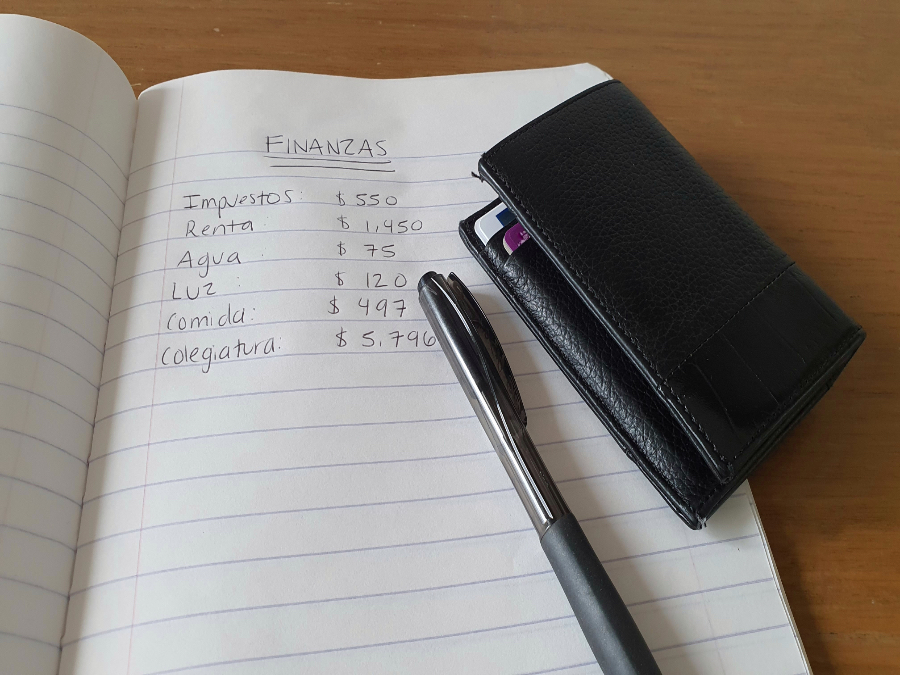 FINANZAS
Impuestos: $ 550
Renta: $ 1,450
Agua: $ 75
Luz: $ 120
Comida: $ 497
Colegiatura: $ 5,796